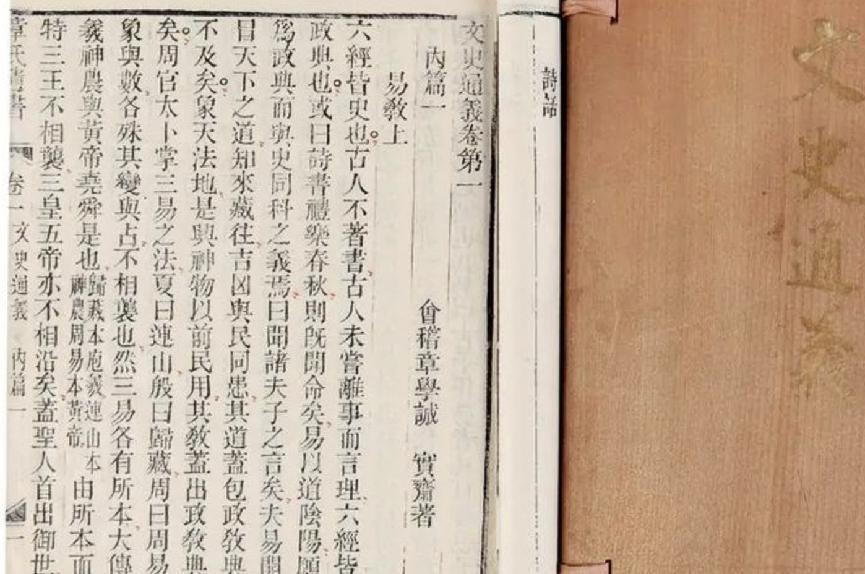 文史通義
詩話
文史通義卷第一
內篇一
會稽章學誠 實齋著
易教上
六經皆史也古人不著書古人未嘗離事而言理六經皆
政典也或曰詩書禮樂春秋則既聞命矣易以道陰陽願
爲政典而與史同科之義焉曰聞諸夫子之言矣夫易開
冒天下之道知來藏往吉凶與民同患其道蓋包政教典
不及矣象天法地是興神物以前民用其教蓋出政教典
矣周官太卜掌三易之法夏曰連山殷曰歸藏周曰周易
象與數各殊其變與占不相襲也然三易各有所本大傳
羲神農與黃帝堯舜是也歸藏本庖羲連山本神農周易本黃帝由所本而
特三王不相襲三皇五帝亦不相沿矣蓋聖人首出御世
章氏遺書 卷一 文史通義 內篇一 一